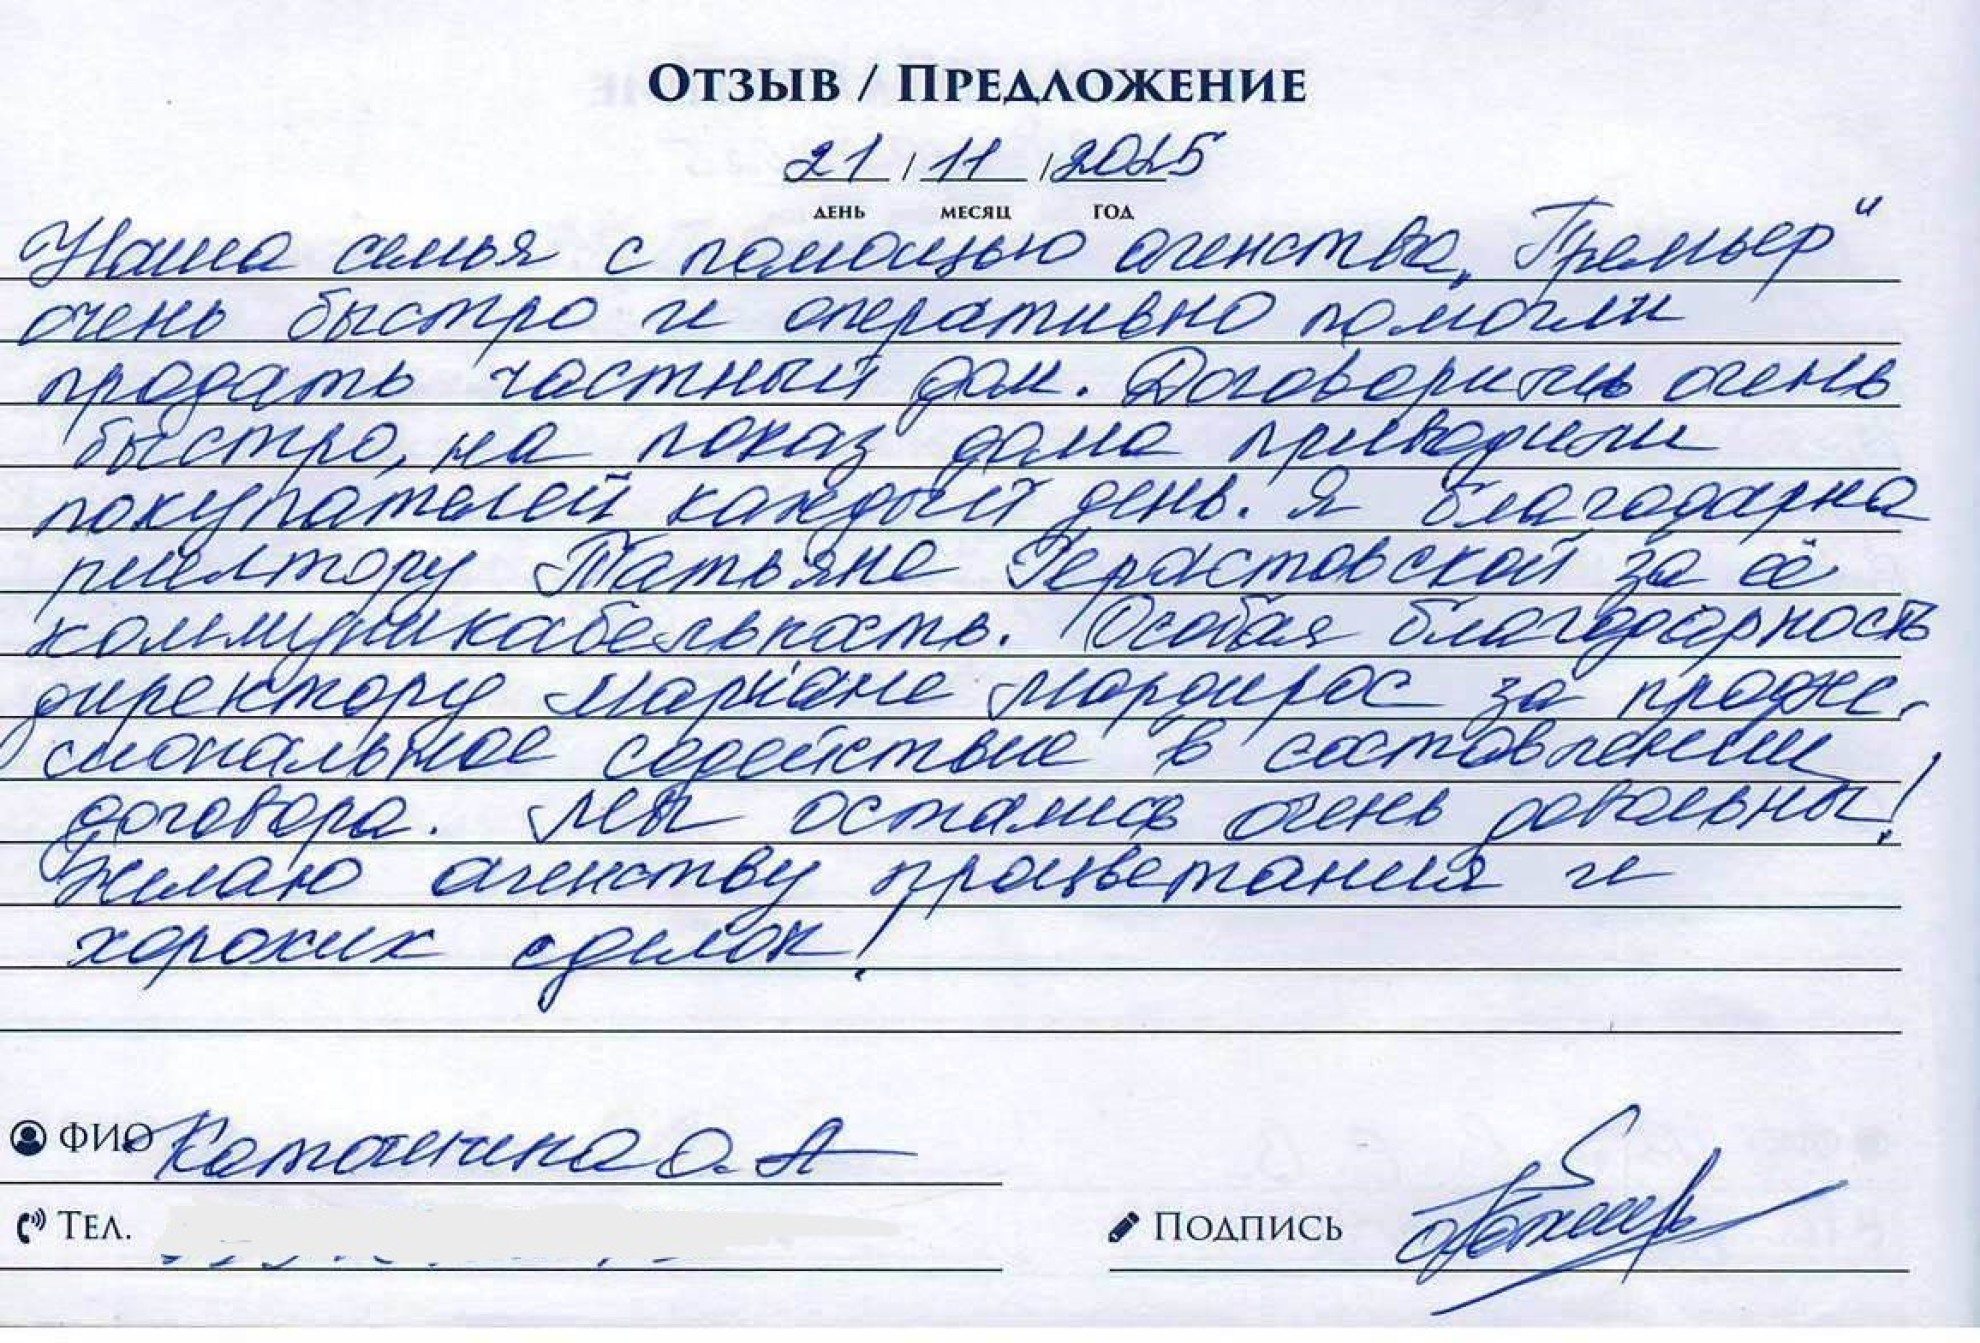 Отзыв / Предложение
21 / 11 / 2025
день месяц год
Наша семья с помощью агенства „Премьер“
очень быстро и оперативно помогли
продать частный дом. Договорились очень
быстро, на показ дома приводили
покупателей каждый день. Я благодарна
риелтору Татьяне Герастовской за её
коммуникабельность. Особая благодарность
директору Марианне Мардирос за профе-
сиональное содействие в составлении
договора. Мы остались очень довольны!
Желаю агенству процветания и
хороших сделок!
ФИО О. А
Тел.
Подпись